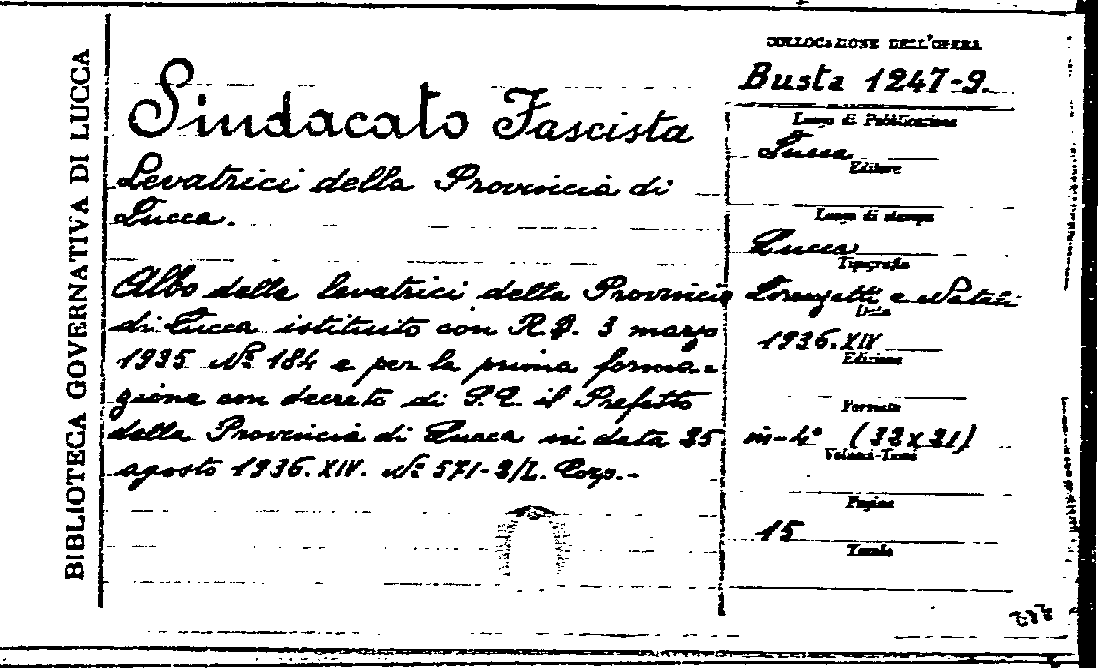 BIBLIOTECA GOVERNATIVA DI LUCCA
Sindacato Fascista
Levatrici della Provincia di
Lucca.
Albo delle levatrici della Provincia
di Lucca istituito con R.D. 3 marzo
1935 Nº 184 e per la prima forma=
zione con decreto di S.E. il Prefetto
della Provincia di Lucca in data 25
agosto 1936.XIV. Nº 571-2/L. Corp.-
COLLOCAZIONE DELL'OPERA
Busta 1247-9.
Luogo di Pubblicazione
Lucca
Editore
Luogo di stampa
Lucca
Tipografia
Lorenzetti e Natali
Data
1936.XIV
Edizione
Formato
in-4° (32x21)
Volumi-Tomi
Pagine
15
Tavole